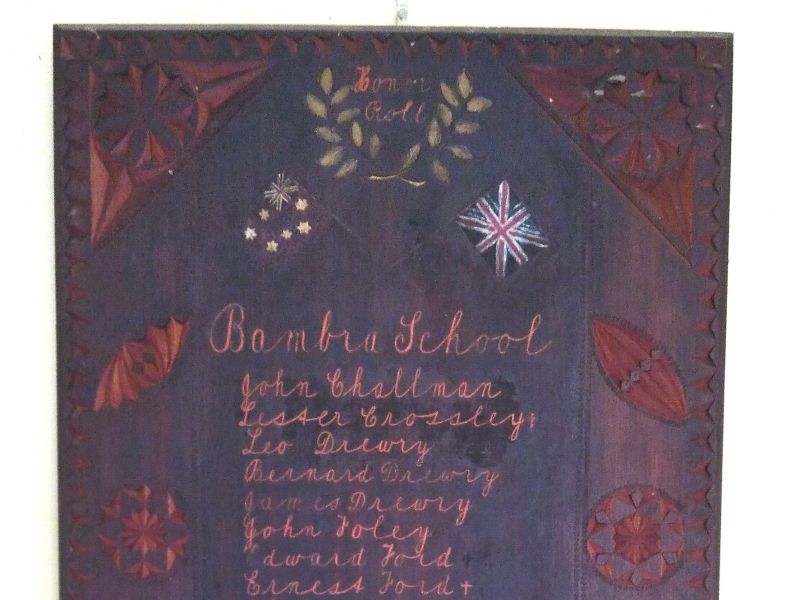 Honor
Roll
Bambra School
John Challman
Lester Crossley+
Leo Drewry
Bernard Drewry
James Drewry
John Foley
Edward Ford +
Ernest Ford +